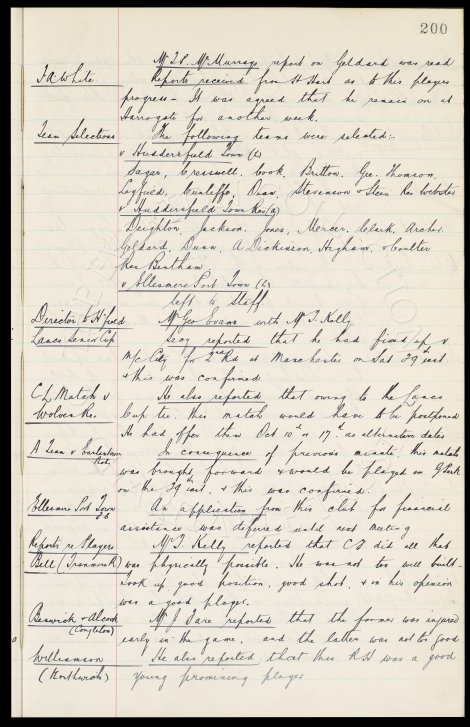 200
Mr T.C. McMurrays report on Geldard was read
J A White Reports received from H Hart as to this players
progress - It was agreed that he remain on at
Harrogate for another week.
Team Selections The following teams were selected:-
v Huddersfield Town (L)
Sagar, Cresswell, Cook, Britton, Gee, Thomson,
Leyfield, Cunliffe, Dean, Stevenson & Stein Res Webster
v Huddersfield Town Res (a)
Deighton, Jackson, Jones, Mercer, Clark, Archer
Geldard, Dunn, A Dickinson, Higham, & Coulter
Res Bentham
v Ellesmere Port Town (L)
left to Staff
Director to H'field Mr Geo Evans with Mr T. Kelly.
Lancs Senior Cup Secy reported that he had fixed up v
M/c City for 2nd Rd at Manchester on Sat 29th inst.
& this was confirmed
C L Match v He also reported that owing to the Lancs
Wolves Res. Cup tie, this match would have to be postponed
He had offer them Oct 10th or 17th as alternative dates
A Team v Earlestown In consequence of previous minute this match
was brought forward & would be played on G Park
on the 29th inst. & this was confirmed.
Ellesmere Port Town An application from this club for financial
assistance was deferred until next meeting
Reports re Players Mr T. Kelly reported that CF did all that
Bell (Tranmere R) was physically possible. He was not too well built -
took up good position, good shot, & in his opinion
was a good player.
Beswick & Alcock Mr J Sare reported that the former was injured
(Congleton) early in the game, and the latter was not to good
Williamson He also reported that this RH was a good
(Northwich) young promising player